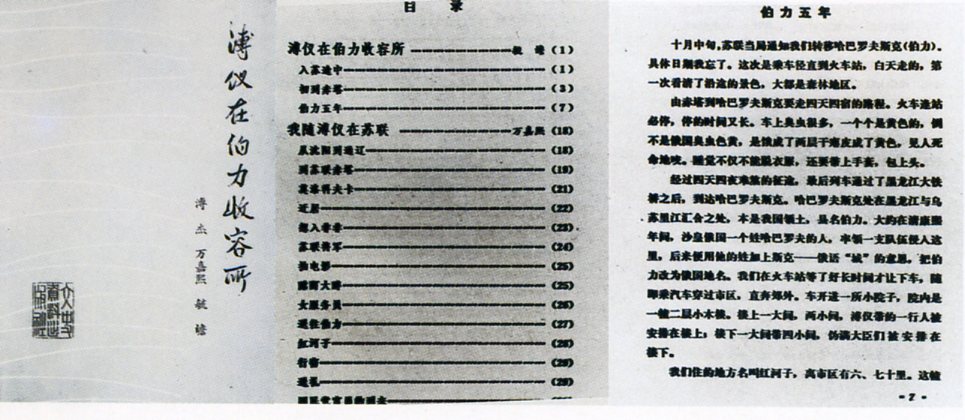 溥仪在伯力收容所
溥杰 万嘉熙 毓嶦
目 录
溥仪在伯力收容所 毓嶦 (1)
入苏途中 (1)
初到赤塔 (3)
伯力五年 (7)
我随溥仪在苏联 万嘉熙 (18)
从沈阳到通辽 (18)
到苏联赤塔 (19)
莫洛科夫卡 (21)
近居 (22)
(23)
苏联将军 (24)
拍电影 (25)
(25)
女服务员 (26)
迁往伯力 (27)
红河子 (28)
(29)
送礼 (29)
伯力五年
十月中旬，苏联当局通知我们转移哈巴罗夫斯克（伯力）。
具体日期我忘了。这次是乘车径直到火车站，白天走的，第
一次看清了沿途的景色，大都是森林地区。
由赤塔到哈巴罗夫斯克要走四天四宿的路程。火车逢站
必停，停的时间又长。车上臭虫很多，一个个是黄色的，倒
不是俄国臭虫色黄，是饿成了两层干瘪皮成了黄色，见人死
命地咬。睡觉不仅不能脱衣服，还要带上手套，包上头。
经过四天四夜难熬的征途，最后列车通过了黑龙江大铁
桥之后，到达哈巴罗夫克。哈巴罗夫克处在黑龙江与乌
苏里江汇合之处，本是我国领土，县名伯力。大约在清康熙
年间，沙皇俄国一个姓哈巴罗夫的人，率领一支队伍侵入这
里，后来便用他的姓加上斯克——俄语“城”的意思，把伯
力改为俄国地名。我们在火车站等了好长时间才让下车，随
即乘汽车穿过市区，直奔郊外。车开进一所小院子，院内是
一幢二层小木楼。楼上一大间，两小间，溥仪带的一行人被
安排在楼上；楼下一大间带四小间，伪满大臣们被安排在
楼下。
我们住的地方名叫红河子，离市区有六、七十里。这幢
- 7 -